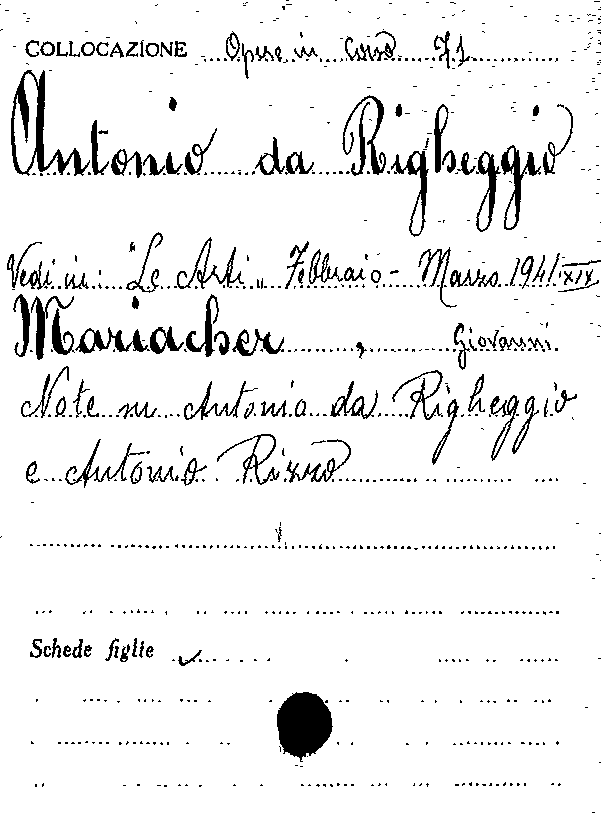 COLLOCAZIONE Opere in Corso 71
Antonio da Righeggio
Vedi in: "Le Arti" Febbraio - Marzo 1941 XIX
Mariacher, Giovanni
Note su Antonio da Righeggio
e Antonio Rizzo
Schede figlie ✓